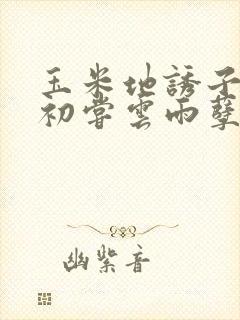 玉米地誘子
初嘗雲雨孽
幽紫音